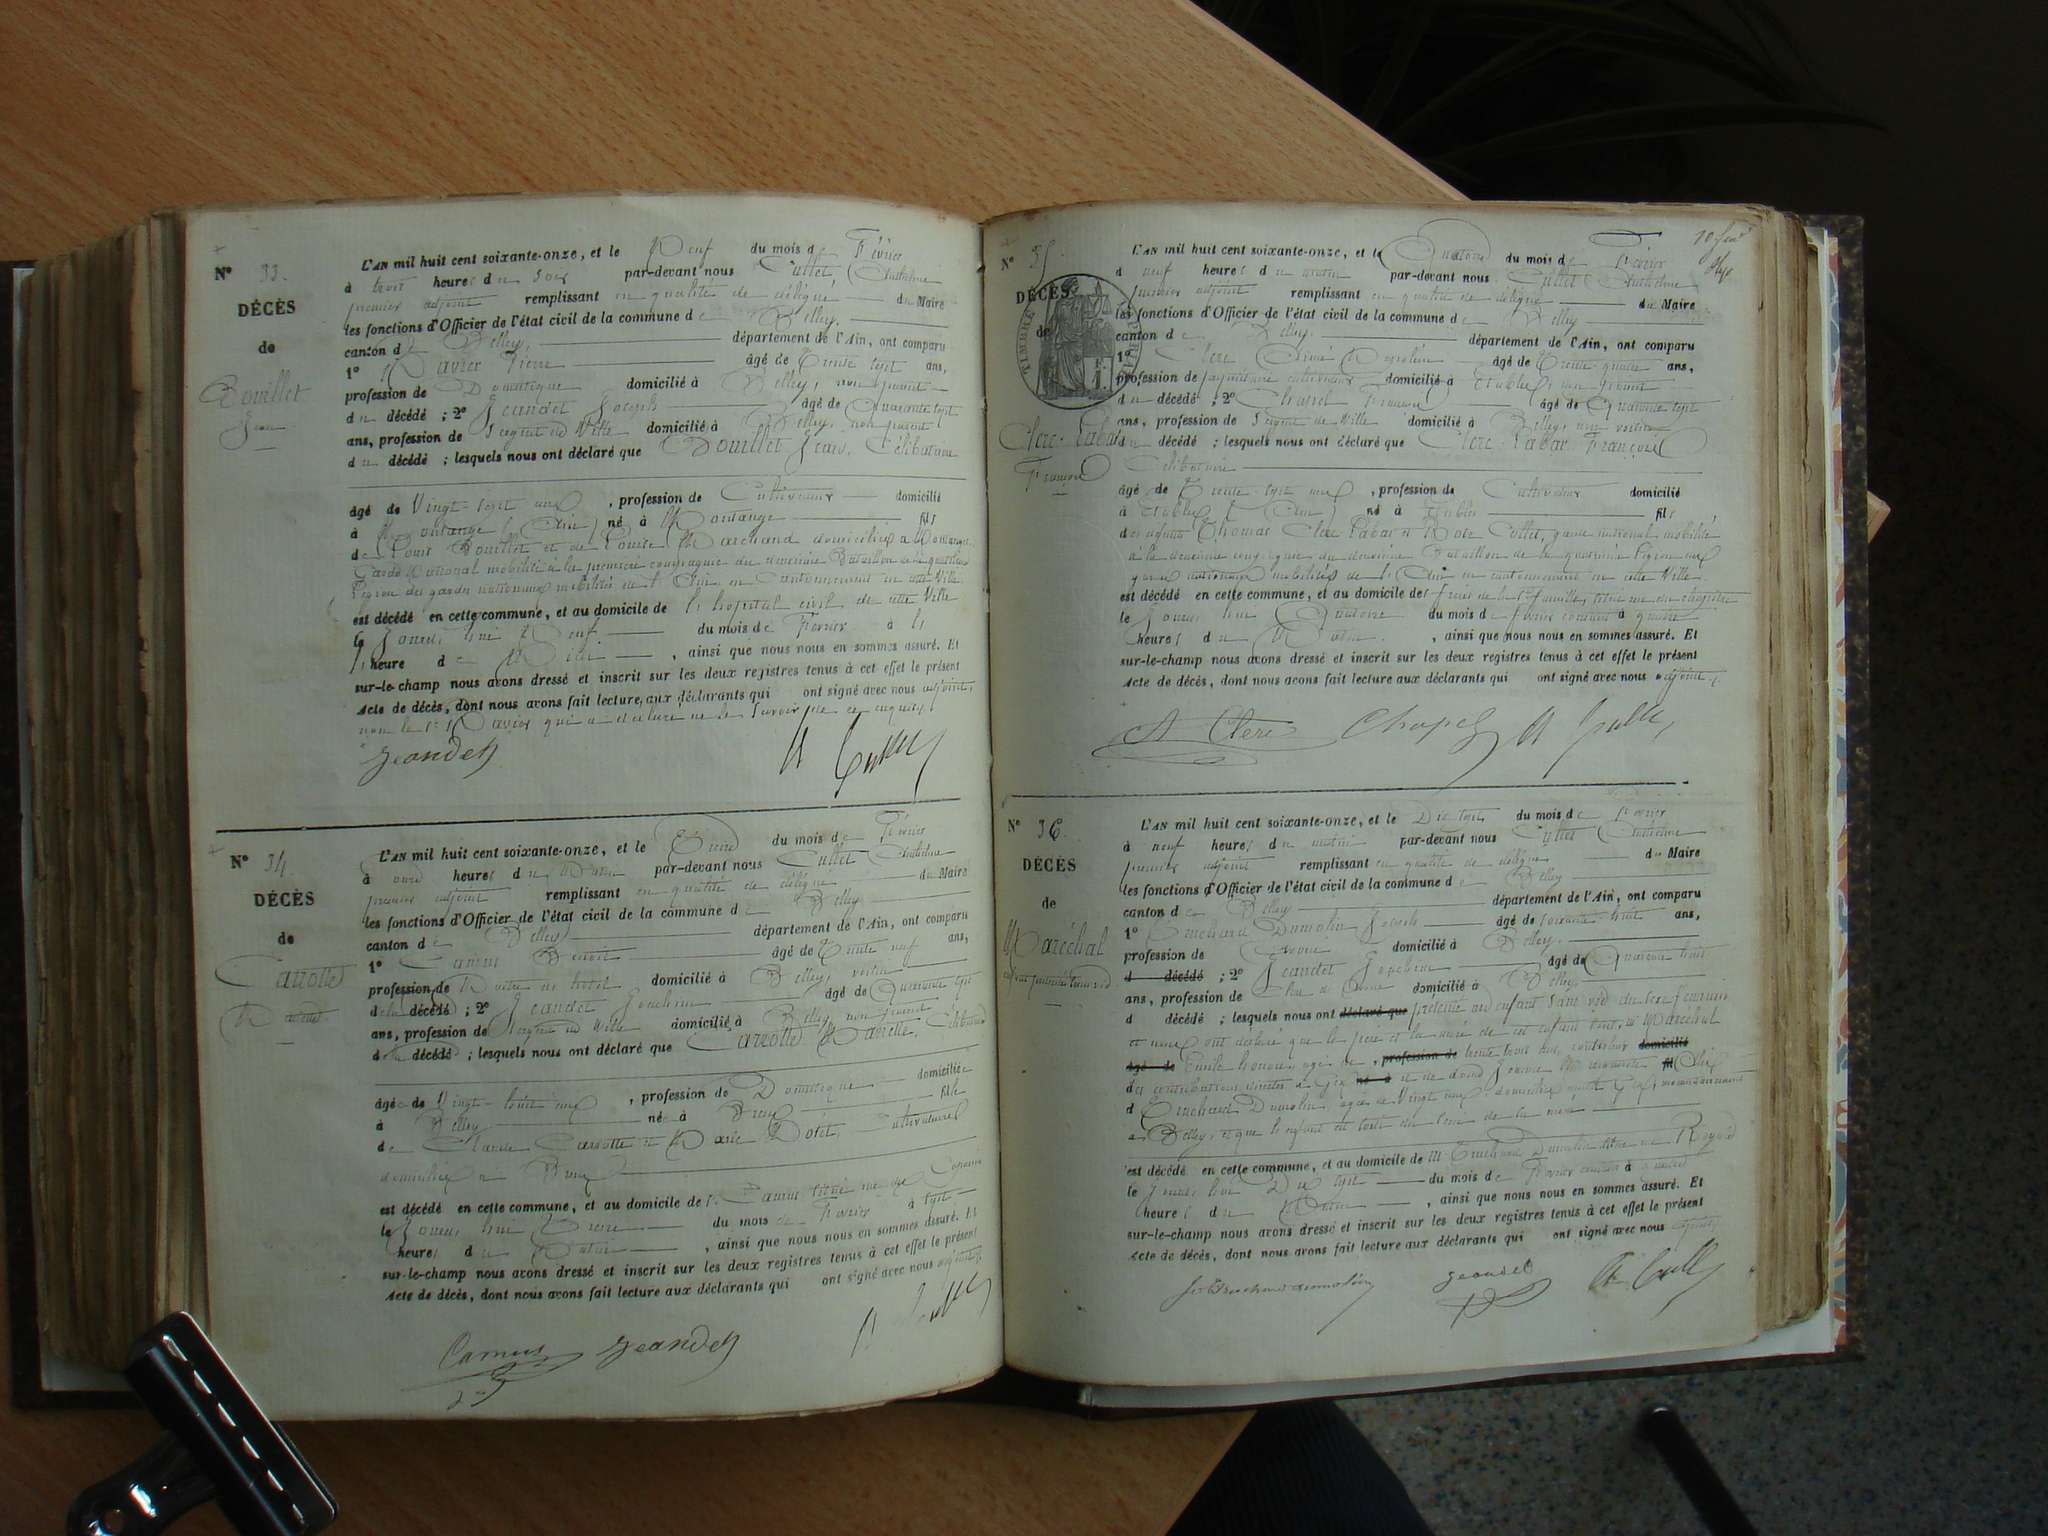 N° 33.
DÉCÈS
de
Bouillet
Jean
L'AN mil huit cent soixante-onze, et le Neuf du mois de Février
à trois heures du soir par-devant nous Cullet Anthelme
premier adjoint remplissant en qualité de délégué du Maire
les fonctions d'Officier de l'état civil de la commune de Belley.
canton de Belley, département de l'Ain, ont comparu
1° Pierre âgé de Trente sept ans,
profession de Domestique domicilié à Belley, non parent
du décédé ; 2° Jeandet Joseph âgé de Quarante sept
ans, profession de Sergent de Ville domicilié à Belley, non parent
du décédé ; lesquels nous ont déclaré que Bouillet Jean, Célibataire
âgé de Vingt-sept ans, profession de Cultivateur domicilié
à Montange (Ain) né à Montange fils
de Louis Bouillet et de Louise Marchand domiciliés à Montange
Garde National mobilisé à la première compagnie du deuxième Bataillon de la quatrième
Légion des gardes nationaux mobilisés de l'Ain en cantonnement en cette Ville
est décédé en cette commune, et au domicile de l'hôpital civil de cette Ville
le Jourd'hui Neuf du mois de Février à
heure de Midi, ainsi que nous nous en sommes assuré. Et
sur-le-champ nous avons dressé et inscrit sur les deux registres tenus à cet effet le présent
Acte de décès, dont nous avons fait lecture aux déclarants qui ont signé avec nous adjoint,
non le qui a déclaré ne le savoir de ce enquis
Jeandet A Cullet
N° 34.
DÉCÈS
de
Carrotte
L'AN mil huit cent soixante-onze, et le Treize du mois de Février
à onze heures du Matin par-devant nous Cullet Anthelme
premier adjoint remplissant en qualité de délégué du Maire
les fonctions d'Officier de l'état civil de la commune de Belley
canton de Belley département de l'Ain, ont comparu
1° Camus Benoit âgé de Trente neuf ans,
profession de Maître d'hôtel domicilié à Belley, voisin
de la décédé ; 2° Jeandet âgé de Quarante sept
ans, profession de Sergent de Ville domicilié à Belley, non parent
de la décédé ; lesquels nous ont déclaré que Carrotte
âgée de Vingt-huit ans, profession de Domestique domiciliée
à Belley née à fille
de Claude Carrotte et Marie Cultivateurs
domiciliés à
est décédé en cette commune, et au domicile de Camus
le Jourd'hui Treize du mois de Février à sept
heures du Matin, ainsi que nous nous en sommes assuré. Et
sur-le-champ nous avons dressé et inscrit sur les deux registres tenus à cet effet le présent
Acte de décès, dont nous avons fait lecture aux déclarants qui ont signé avec nous adjoint
Camus Jeandet A Cullet
10
N° 35
DÉCÈS
de
TIMBRE
Clerc-Labar
François
L'AN mil huit cent soixante-onze, et le Quatorze du mois de Février
à neuf heures du matin par-devant nous Cullet Anthelme
premier adjoint remplissant en qualité de délégué du Maire
les fonctions d'Officier de l'état civil de la commune de Belley
canton de Belley. département de l'Ain, ont comparu
1° Clerc Aimé âgé de Trente-quatre ans,
profession de propriétaire cultivateur domicilié à Etables, non parent
du décédé ; 2° Chapel François âgé de Quarante sept
ans, profession de Sergent de Ville domicilié à Belley, non voisin
du décédé ; lesquels nous ont déclaré que Clerc-Labar François
Célibataire
âgé de Trente-sept ans, profession de Cultivateur domicilié
à Etables (Ain) né à Etables fils
des défunts Thomas Clerc Labar et Rose Collet, garde national mobilisé
à la deuxième compagnie du deuxième Bataillon de la quatrième Légion des
gardes nationaux mobilisés de l'Ain en cantonnement en cette Ville.
est décédé en cette commune, et au domicile des frères de la Ste famille,
le Jourd'hui Quatorze du mois de février courant à quatre
heures du Matin, ainsi que nous nous en sommes assuré. Et
sur-le-champ nous avons dressé et inscrit sur les deux registres tenus à cet effet le présent
Acte de décès, dont nous avons fait lecture aux déclarants qui ont signé avec nous adjoint
A Clerc Chapel A Cullet
N° 36.
DÉCÈS
de
Maréchal
enfant présenté sans vie
L'AN mil huit cent soixante-onze, et le Dix sept du mois de Février
à neuf heures du matin par-devant nous Cullet Anthelme
premier adjoint remplissant en qualité de délégué du Maire
les fonctions d'Officier de l'état civil de la commune de Belley
canton de Belley département de l'Ain, ont comparu
1° Dumolin Joseph âgé de soixante-huit ans,
profession de domicilié à Belley.
d décédé ; 2° Jeandet âgé de Quarante huit
ans, profession de domicilié à Belley.
d décédé ; lesquels nous ont déclaré que présenté un enfant sans vie du sexe féminin
et nous ont déclaré que le père et la mère de cet enfant sont, Mr Maréchal
âgé de Emile âgé de, profession de trente trois ans, contrôleur domicilié
des contributions directes à Gex né à et de dame fil
d Dumolin, âgée de Vingt ans, domiciliés à Gex, momentanément
à Belley, et que l'enfant est sorti du sein de la mère
est décédé en cette commune, et au domicile de M. Dumolin
le Jourd'hui Dix sept du mois de Février courant à
heures du Matin, ainsi que nous nous en sommes assuré. Et
sur-le-champ nous avons dressé et inscrit sur les deux registres tenus à cet effet le présent
Acte de décès, dont nous avons fait lecture aux déclarants qui ont signé avec nous adjoint
Jeandet A Cullet